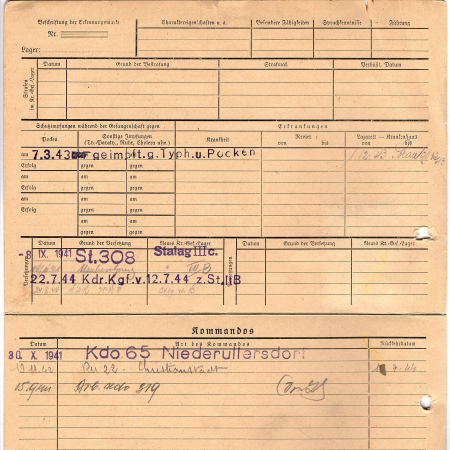 Beschriftung der Erkennungsmarke
Nr.
Lager:
Charaktereigenschaften u. a.
Besondere Fähigkeiten
Sprachkenntnisse
Führung
Strafen im Kr.-Gef.-Lager
Datum
Grund der Bestrafung
Strafmaß
Verbüßt, Datum
Schutzimpfungen während der Gefangenschaft gegen
Erkrankungen
Pocken
Sonstige Impfungen
(Ty.-Paraty., Ruhr, Cholera usw.)
Krankheit
Revier
von bis
Lazarett – Krankenhaus
von bis
am 7.3.43 geimpft.g.Typh.u.Pocken
Erfolg gegen
am am
Erfolg gegen
am am
Erfolg gegen
am am
Erfolg gegen
Datum
Grund der Versetzung
Neues Kr.-Gef.-Lager
Datum
Grund der Versetzung
Neues Kr.-Gef.-Lager
Versetzungen
-8 IX. 1941 St.308 Stalag IIIc.
III B
22.7.44 Kdr.Kgf.v.12.7.44 z.St.IIB
Kommandos
Datum
Art des Kommandos
Rückkehrdatum
30. X. 1941 Kdo 65 Niederullersdorf
22 - Christianstadt
Arb. Kdo 319